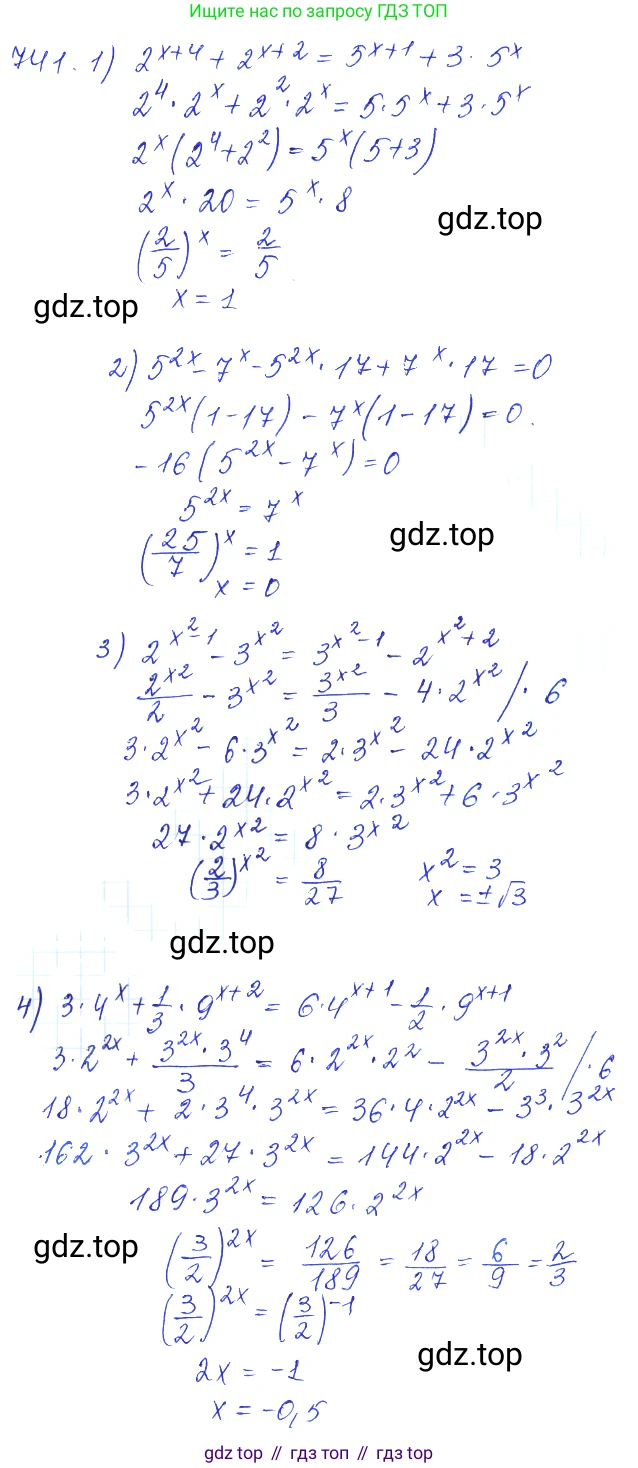 Ищите по запросу ГДЗ ТОП
741. 1) 2^{x+4} + 2^{x+2} = 5^{x+1} + 3 · 5^x
2^4 · 2^x + 2^2 · 2^x = 5 · 5^x + 3 · 5^x
2^x (2^4 + 2^2) = 5^x (5+3)
2^x · 20 = 5^x · 8
gdz.top
(2/5)^x = 2/5
gdz.top
x = 1
2) 5^{2x} - 7^x - 5^{2x} · 17 + 7^x · 17 = 0
5^{2x} (1-17) - 7^x (1-17) = 0.
-16 (5^{2x} - 7^x) = 0
5^{2x} = 7^x
gdz.top
(25/7)^x = 1
x = 0
3) 2^{x^2-1} - 3^{x^2} = 3^{x^2-1} - 2^{x^2+2}
2^{x^2}/2 - 3^{x^2} = 3^{x^2}/3 - 4 · 2^{x^2} / · 6
3 · 2^{x^2} - 6 · 3^{x^2} = 2 · 3^{x^2} - 24 · 2^{x^2}
3 · 2^{x^2} + 24 · 2^{x^2} = 2 · 3^{x^2} + 6 · 3^{x^2}
27 · 2^{x^2} = 8 · 3^{x^2}
(2/3)^{x^2} = 8/27 x^2 = 3
x = ±√3
gdz.top
4) 3 · 4^x + 1/3 · 9^{x+2} = 6 · 4^{x+1} - 1/2 · 9^{x+1}
3 · 2^{2x} + 3^{2x} · 3^4/3 = 6 · 2^{2x} · 2^2 - 3^{2x} · 3^2/2 / · 6
18 · 2^{2x} + 2 · 3^4 · 3^{2x} = 36 · 4 · 2^{2x} - 3^3 · 3^{2x}
162 · 3^{2x} + 27 · 3^{2x} = 144 · 2^{2x} - 18 · 2^{2x}
189 · 3^{2x} = 126 · 2^{2x}
gdz.top
(3/2)^{2x} = 126/189 = 18/27 = 6/9 = 2/3
(3/2)^{2x} = (3/2)^{-1}
2x = -1
gdz.top
x = -0,5
gdz.top // гдз топ // гдз.топ